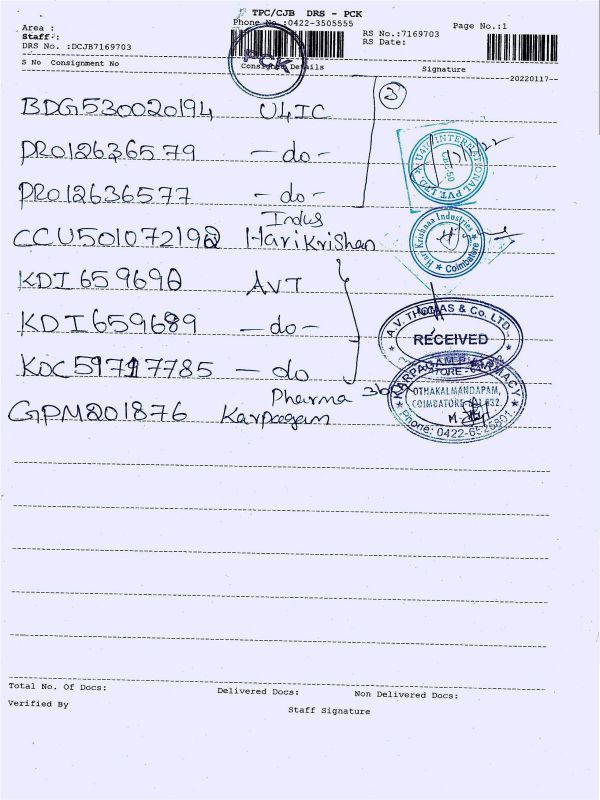 TPC/CJB DRS - PCK
Phone No.:0422-3505555
Page No.:1
Area :
Staff :
DRS No. :DCJB7169703
RS No.:7169703
RS Date:
PCK
S No Consignment No
Consignee Details
Signature
20220117
BDG530020194 U4IC
3
PRO12636579 - do -
U4IC INTERNATIONAL PVT. LTD.
PRO12636577 - do -
Indus
CCU501072192 HariKrishan
Hari Krishnaa Industries
Coimbatore
KDI659690 AVT
KDI659689 - do -
A.V. THOMAS & Co. LTD.
RECEIVED
KOC59717785 - do
Pharma
GPM801876 Karpagam
KARPAGAM PHARMACY
OTHAKALMANDAPAM,
COIMBATORE
Phone: 0422-6525801
Total No. Of Docs:
Delivered Docs:
Non Delivered Docs:
Verified By
Staff Signature